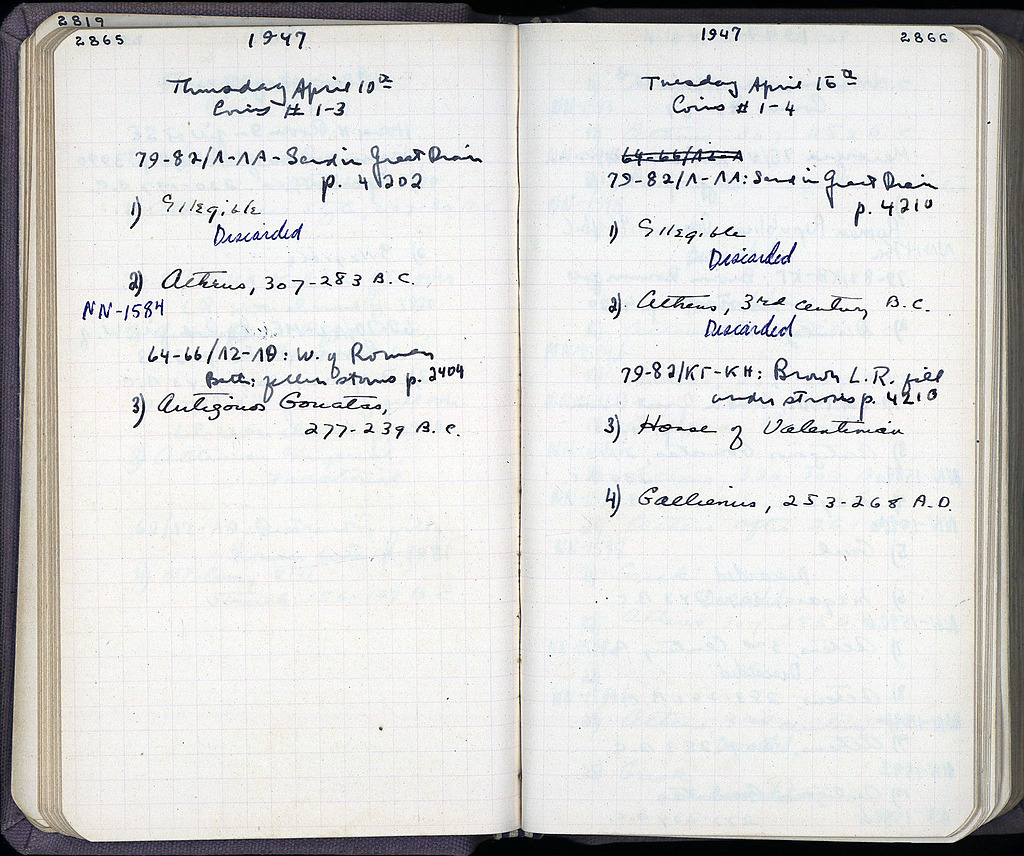 2819
2865
1947
Thursday April 10th
Coins # 1-3
79-82/Λ-ΛΑ - Sand in Great Drain
p. 4202
1) Illegible
Discarded
2) Athens, 307-283 B.C.
NN-1584
64-66/ΛΖ-ΛΘ: W. of Roman
Bath: fill in stoas p. 2404
3) Antigonos Gonatas,
277-239 B.C.
1947
2866
Tuesday April 15th
Coins # 1-4
79-82/Λ-ΛΑ: Sand in Great Drain
p. 4210
1) Illegible
Discarded
2) Athens, 3rd century B.C.
Discarded
79-82/ΚΓ-ΚΗ: Brown L.R. fill
under stroses p. 4210
3) House of Valentinian
4) Gallienus, 253-268 A.D.